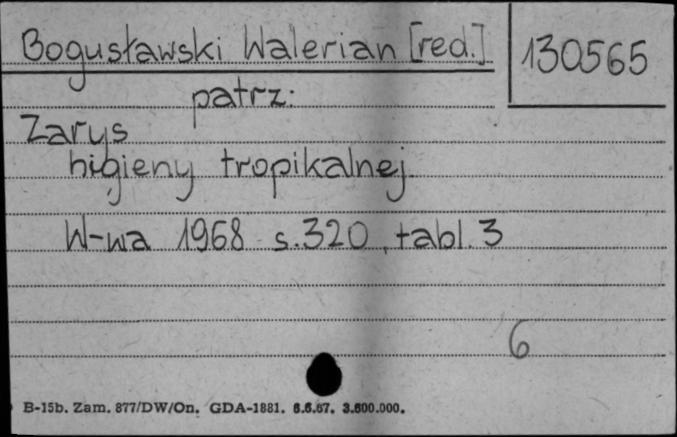 Bogusławski Walerian [red.]
130565
patrz:
Zarys
higieny tropikalnej.
W-wa 1968 s.320, tabl. 3
6
B-15b. Zam. 877/DW/On. GDA-1881. 6.6.67. 3.600.000.